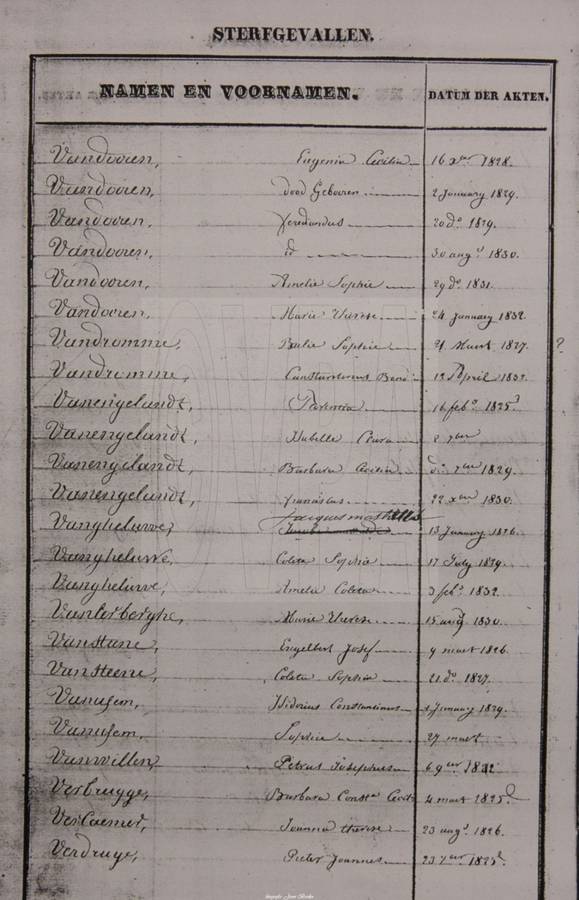 STERFGEVALLEN.
NAMEN EN VOORNAMEN. DATUM DER AKTEN.
Vandooren, Eugenia Cecilia 16 xber 1828.
Vandooren, dood Geboren 2 January 1829.
Vandooren, Ferdindus 20 do 1829.
Vandooren, do 30 augt 1830.
Vandooren, Amelia Sophie 29 do 1831.
Vandooren, Marie Therese 24 January 1832
Vandromme, Sophie 21 Maart 1827. ?
Vandromme, Constantinus Bend 12 April 1832.
Vanengelandt, Florentia 16 feb 1825
Vanengelandt, Isabelle Clara
Vanengelandt, Barbara Cecilia 1829.
Vanengelandt, Franciscus 22 xber 1830.
Vangheluwe, Jacques mathilde 13 January 1826.
Vangheluwe, Coleta Sophia 17 July 1829.
Vangheluwe, Amelia Coleta 3 feb 1832.
Vanterberghe, Marie Therese 15 aug 1830.
Vanstane, Engelbert Josef 9 maart 1826.
Vansteene, Coleta Sophia 21 do 1827.
Vanusem, Isidorius Constantinus January 1829.
Vanusem, Sophie 27 maart
Vanwillen, Petrus Josephus 6 9ber 1832
Verbrugge, Barbara Consta Cecil 4 maart 1825
Verlaemer, Joanna therese 23 augt 1826.
Verdruye, Pieter Joannes 23 1825